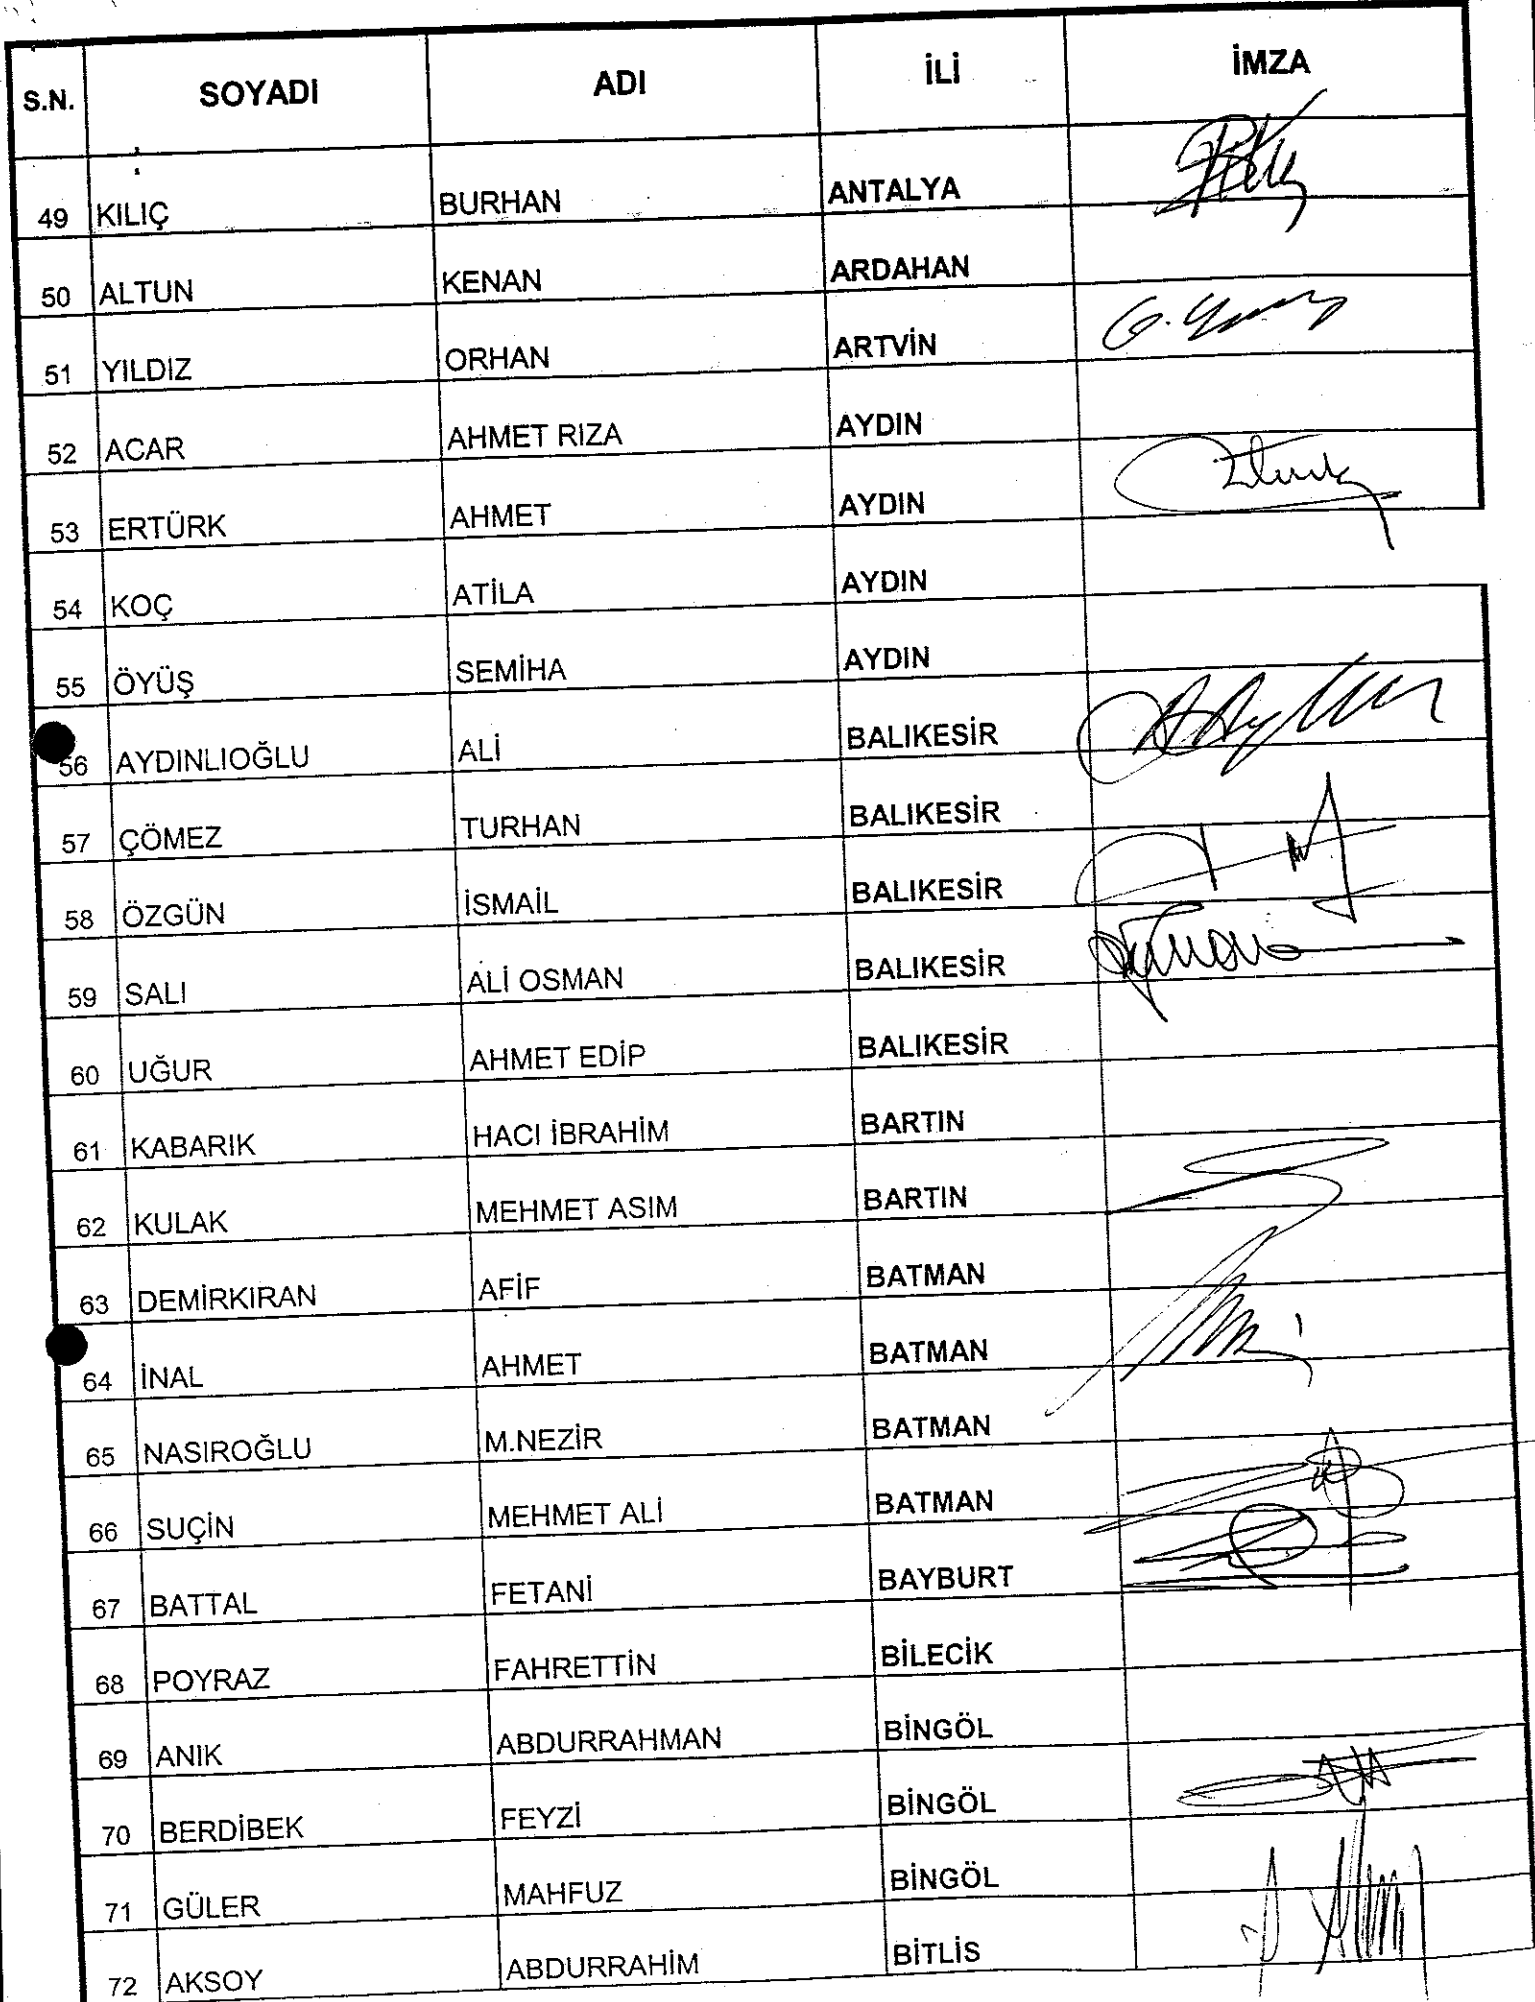 S.N. SOYADI ADI İLİ İMZA
49 KILIÇ BURHAN ANTALYA
50 ALTUN KENAN ARDAHAN
51 YILDIZ ORHAN ARTVİN
52 ACAR AHMET RIZA AYDIN
53 ERTÜRK AHMET AYDIN
54 KOÇ ATİLA AYDIN
55 ÖYÜŞ SEMİHA AYDIN
56 AYDINLIOĞLU ALİ BALIKESİR
57 ÇÖMEZ TURHAN BALIKESİR
58 ÖZGÜN İSMAİL BALIKESİR
59 SALI ALİ OSMAN BALIKESİR
60 UĞUR AHMET EDİP BALIKESİR
61 KABARIK HACI İBRAHİM BARTIN
62 KULAK MEHMET ASIM BARTIN
63 DEMİRKIRAN AFİF BATMAN
64 İNAL AHMET BATMAN
65 NASIROĞLU M.NEZİR BATMAN
66 SUÇİN MEHMET ALİ BATMAN
67 BATTAL FETANİ BAYBURT
68 POYRAZ FAHRETTİN BİLECİK
69 ANIK ABDURRAHMAN BİNGÖL
70 BERDİBEK FEYZİ BİNGÖL
71 GÜLER MAHFUZ BİNGÖL
72 AKSOY ABDURRAHİM BİTLİS